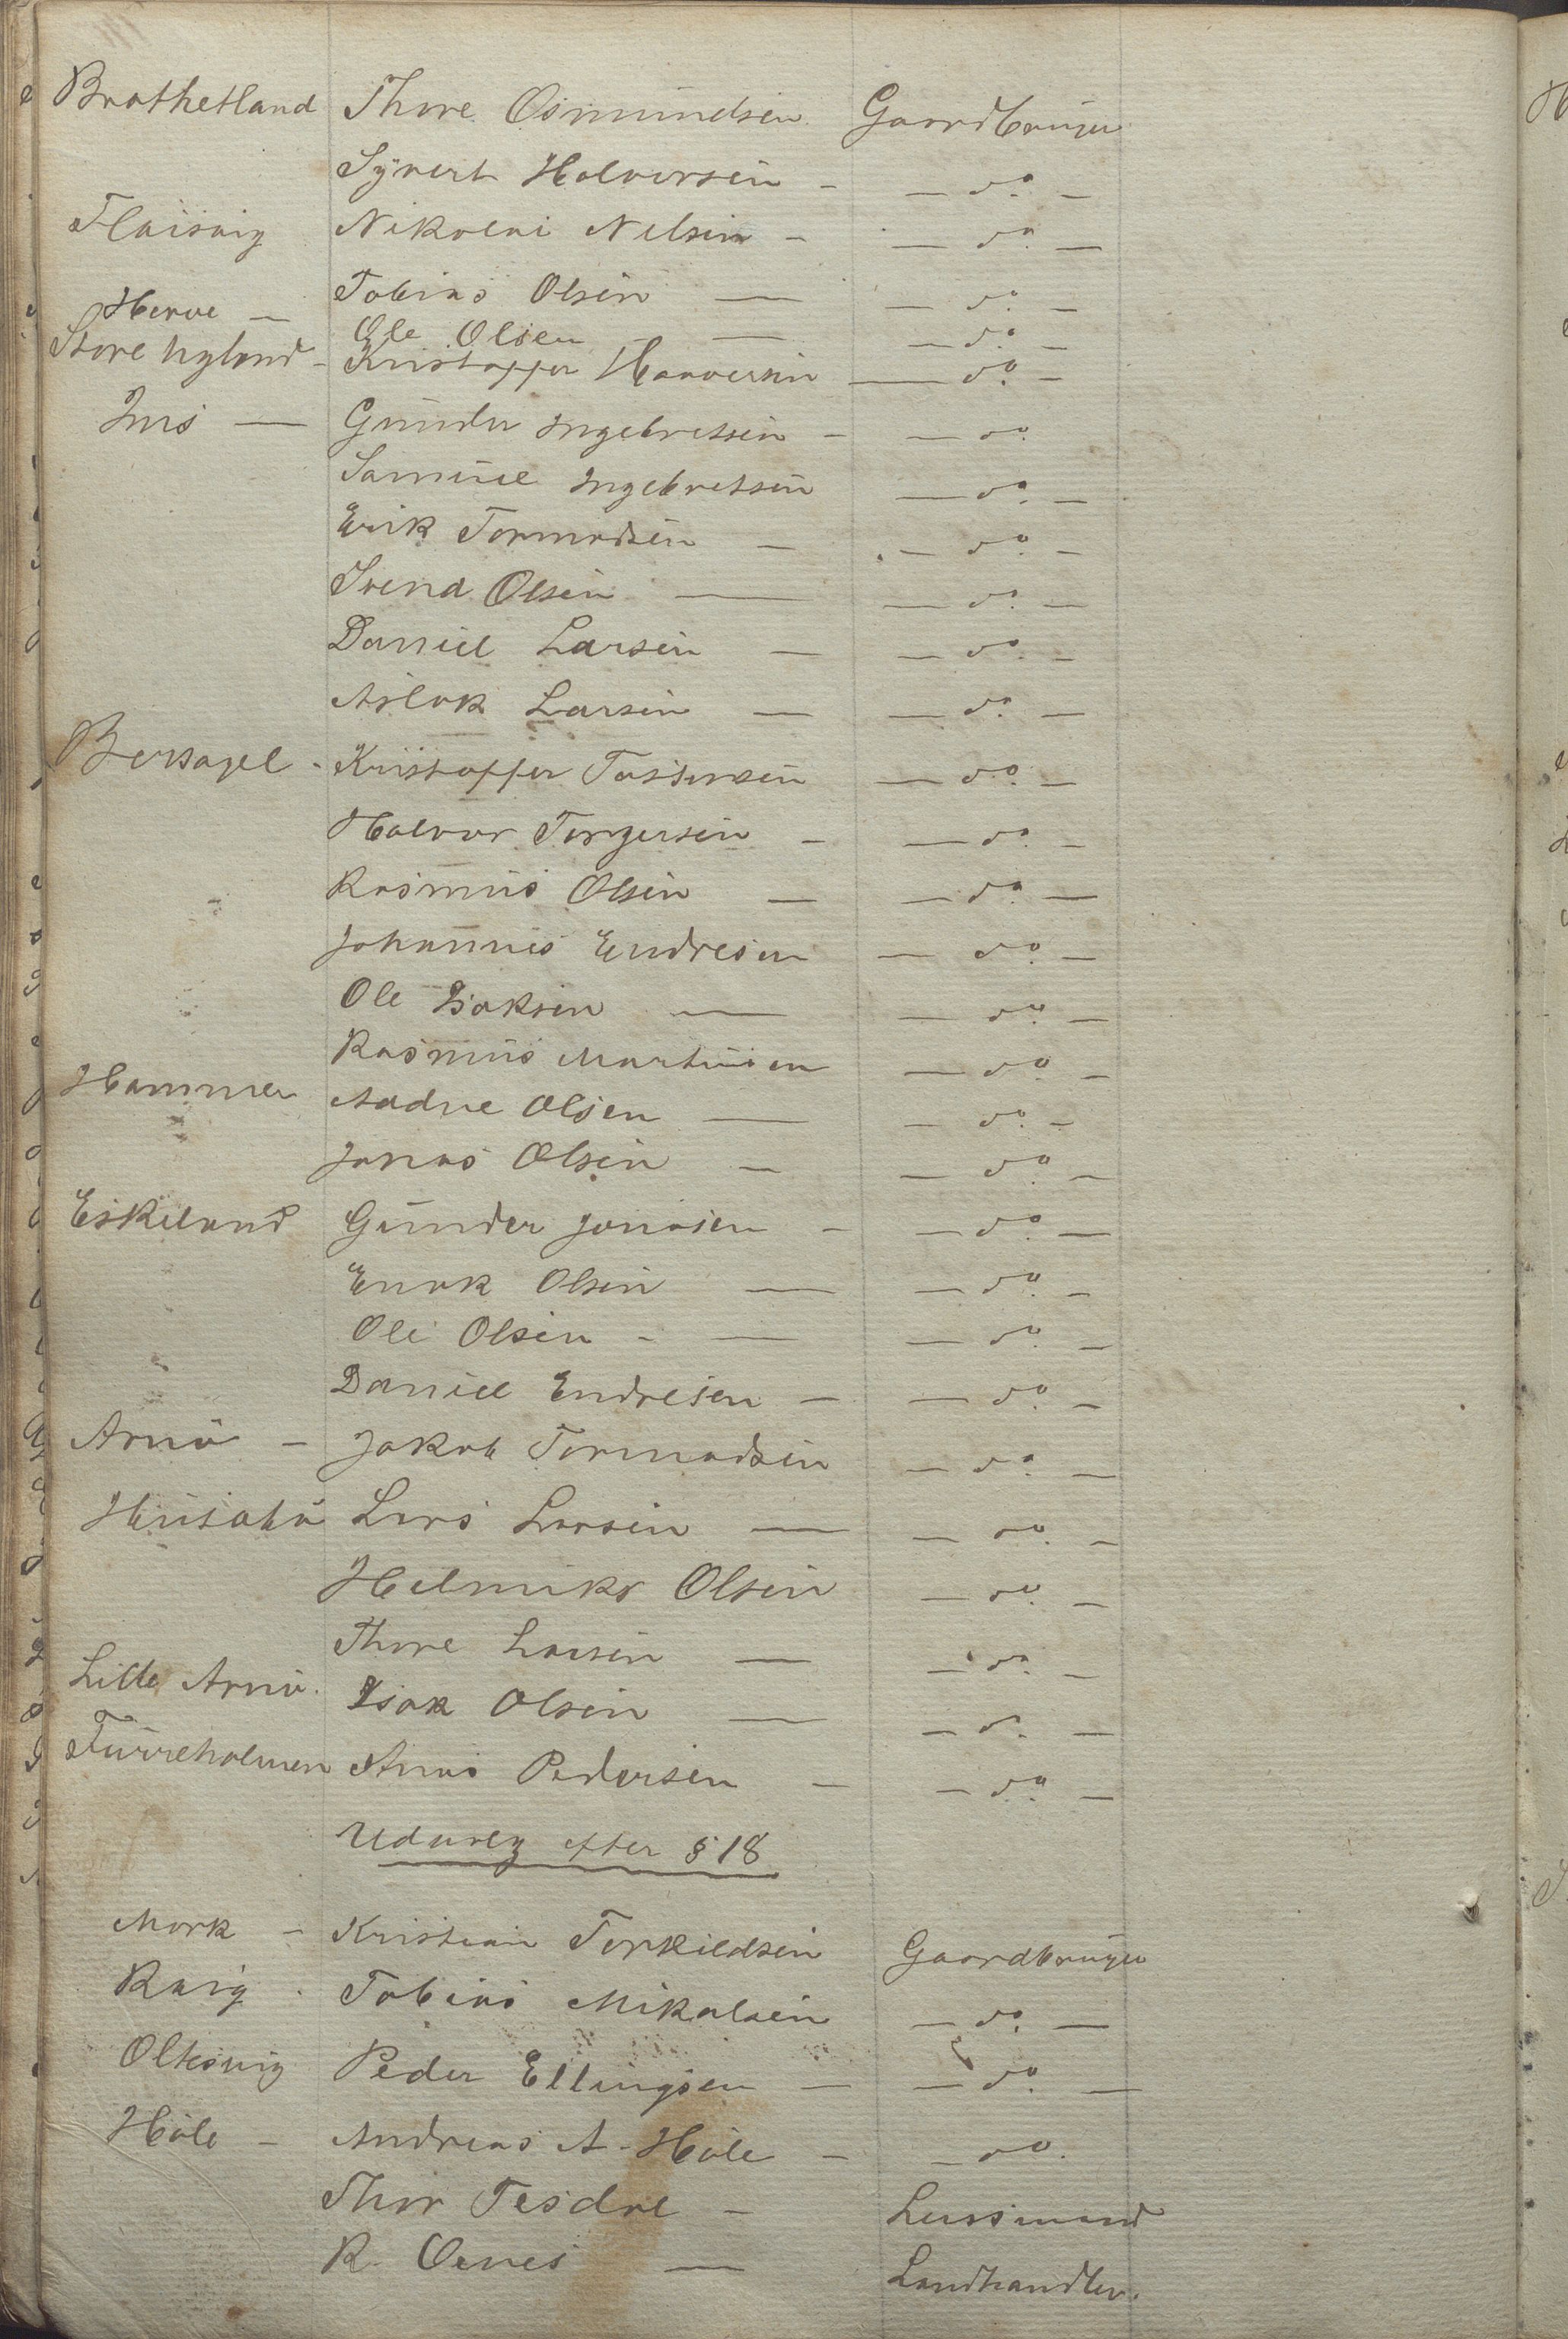 Brathetland Thore Osmundsen Gaardbruger
Syvert Halvorsen - — do. —
Flaisvig Nikolai Nilsen - — do. —
Tobias Olsen — — do. —
Herve — Ole Olsen — — do. —
Store Nyland - Kristoffer Haaversen — do. —
Ims — Gunder Ingebretsen - — do.
Samuel Ingebretsen — do. —
Erik Tormodsen — — do. —
Svend Olsen — — do. —
Daniel Larsen — — do. —
Aslak Larsen — — do. —
Bersagel - Kristoffer Tostensen — do. —
Halvor Torgersen - — do. —
Rasmus Olsen — — do. —
Johannes Endresen — do. —
Ole Isaksen — — do. —
Rasmus Martinsen — do. —
Hammer Aadne Olsen — — do. —
Jonas Olsen — — do. —
Eskeland Gunder Jonasen - — do. —
Enok Olsen — — do. —
Ole Olsen - — — do. —
Daniel Endresen — — do. —
Arnö — Jakob Tormodsen — do. —
Husabö Lars Larsen — — do. —
Helmike Olsen — do. —
Thore Larsen — — do. —
Lille Arnö. Isak Olsen — — do. —
Furreholmen Anas Pedersen — — do. —
Udvalg efter § 18
Mörk — Kristian Torkildsen Gaardbruger
Kvig . Tobias Mikalsen — do. —
Oltesvig Peder Ellingsen — — do. —
Höle — Andreas A. Höle — — do.
Thor Tesdal — Lensmand
R. Oenes — Landhandler.